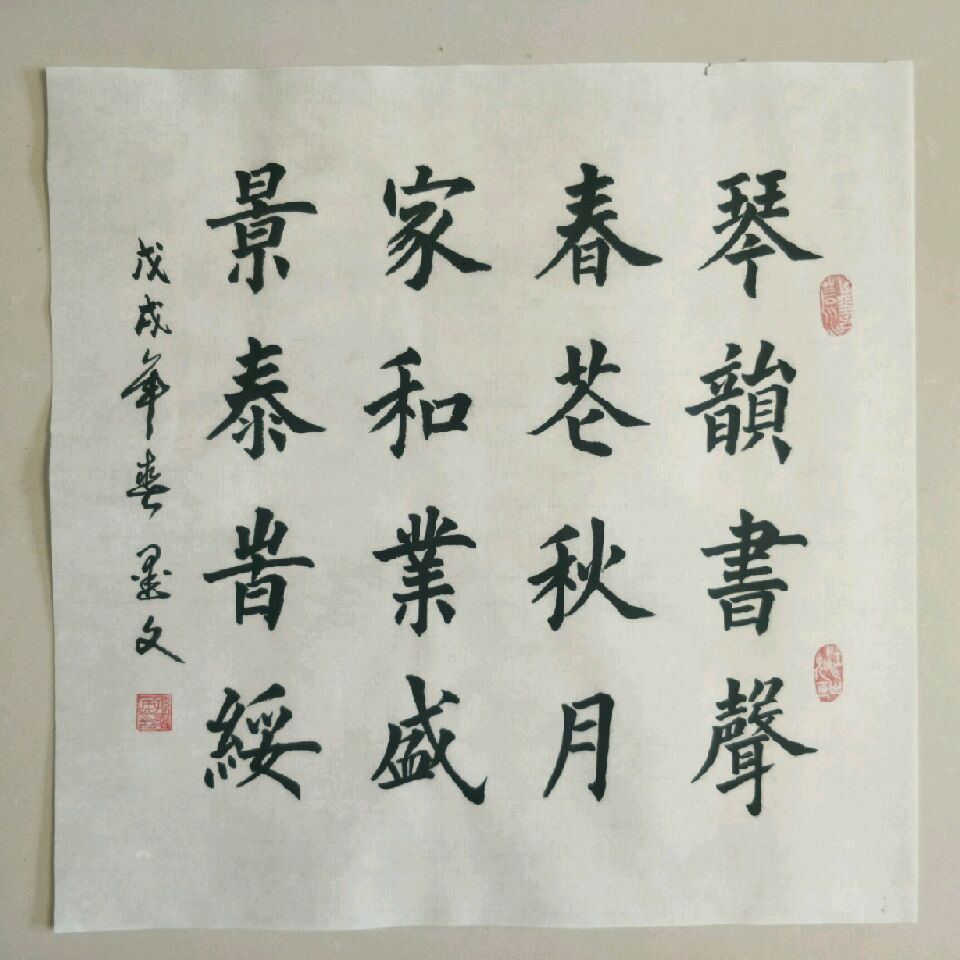 琴韻書聲
春芲秋月
家和業盛
景泰旹綏
戊戌年春墨文